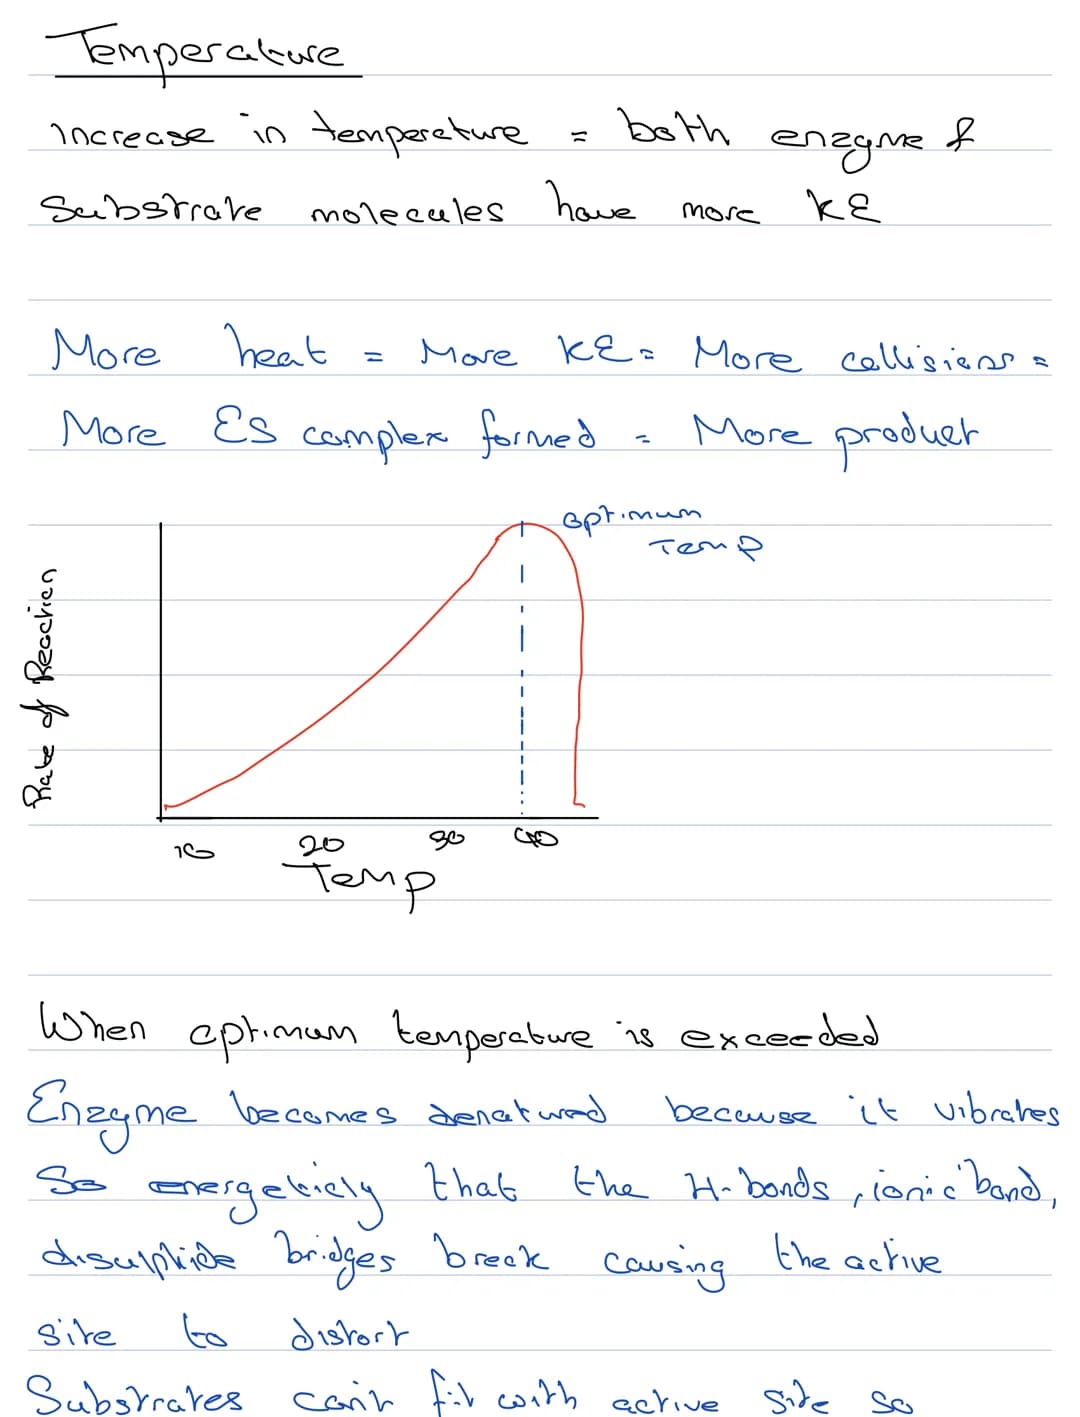 Temperature
increase in temperature = both enzyme &
Substrate molecules have more KE
More heat = More KE = More collisions =
More ES complex formed = More product
optimum
Temp
Rate of Reaction
10 20 30 40
Temp
When optimum temperature is exceeded
Enzyme becomes denatured because it vibrates
So energeticly that the H-bonds, ionic bond,
disulphide bridges break causing the active
site to distort
Substrates can't fit with active site so